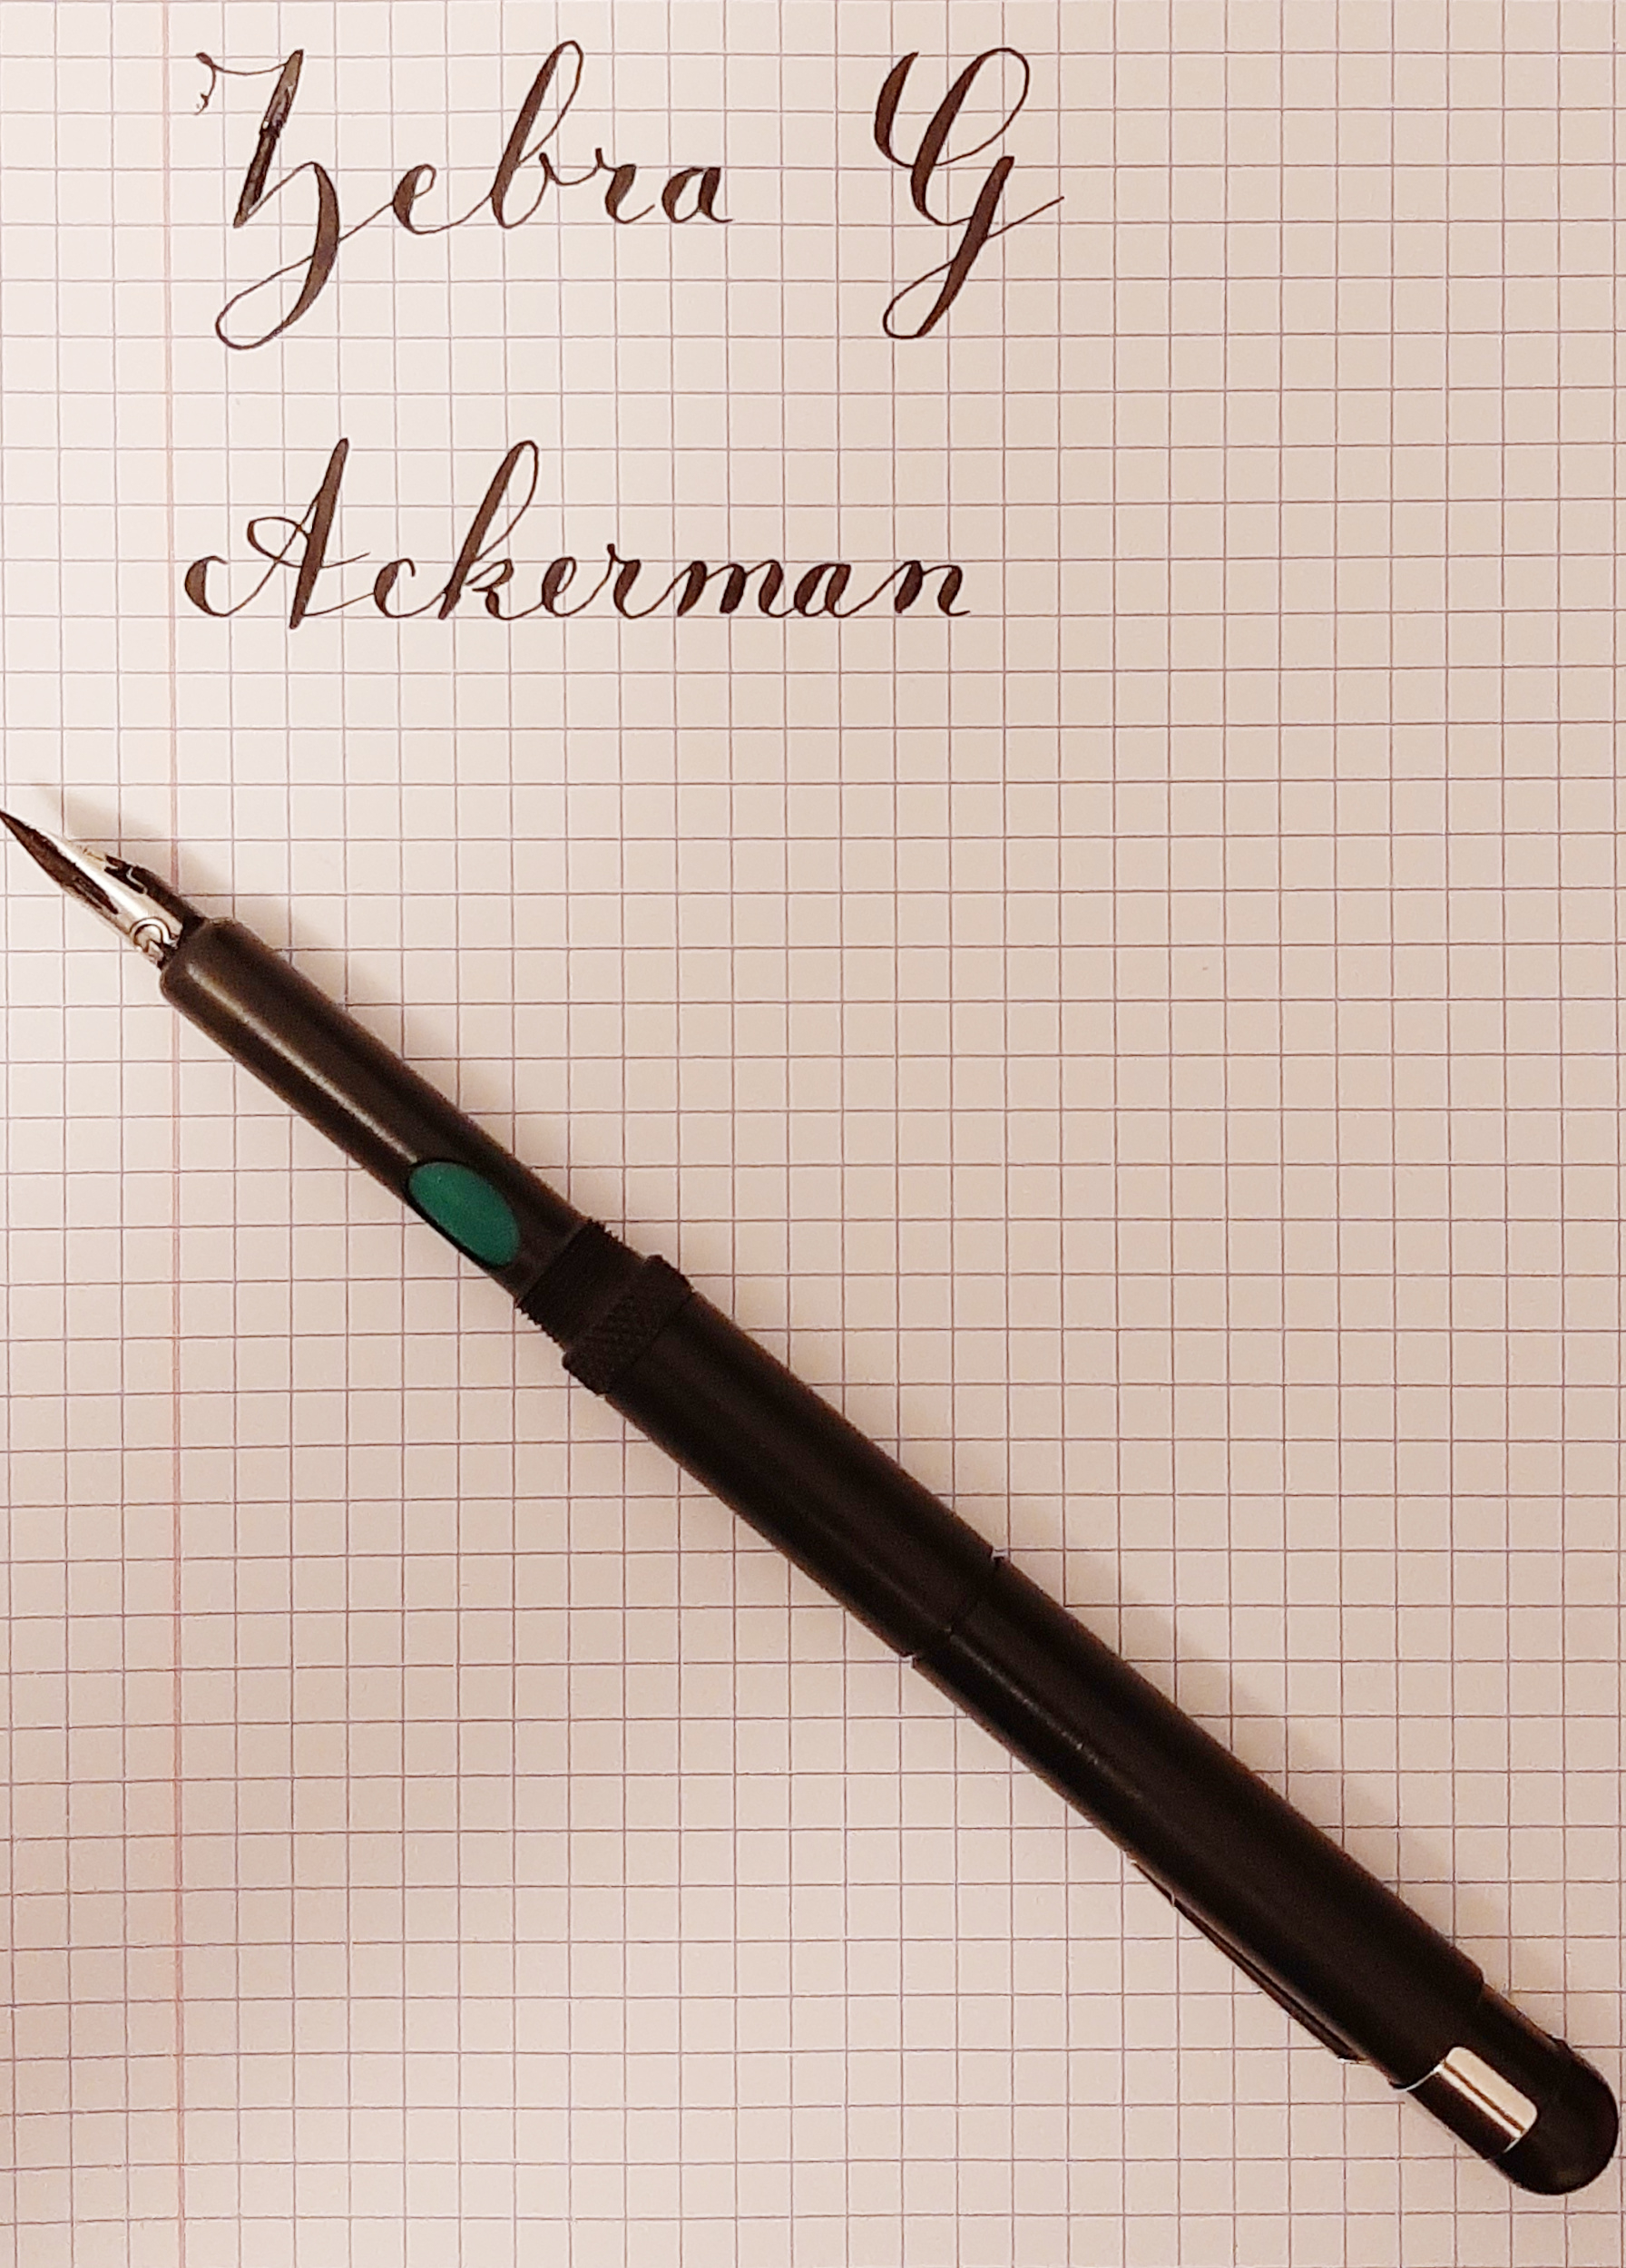 Zebra G
Ackerman